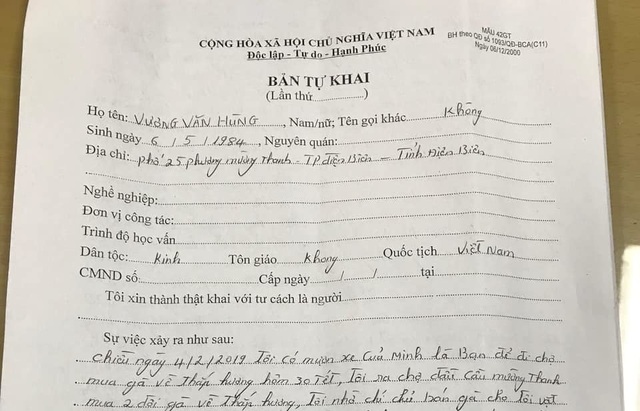 CỘNG HÒA XÃ HỘI CHỦ NGHĨA VIỆT NAM
Độc lập - Tự do - Hạnh Phúc
MẪU 42GT
BH theo QĐ số 1093/QĐ-BCA(C11)
Ngày 06/12/2000
BẢN TỰ KHAI
(Lần thứ....................)
Họ tên: VƯƠNG VĂN HÙNG, Nam/nữ; Tên gọi khác Không
Sinh ngày 6/5/1984, Nguyên quán:
Địa chỉ: phố 25 phường mường Thanh - TP điện Biên - Tỉnh Điện Biên
Nghề nghiệp:
Đơn vị công tác:
Trình độ học vấn
Dân tộc: Kinh Tôn giáo Không Quốc tịch Việt Nam
CMND số: Cấp ngày / / tại
Tôi xin thành thật khai với tư cách là người
Sự việc xảy ra như sau:
Chiều ngày 4/2/2019 Tôi có mượn xe Của Minh là Bạn để đi chợ
mua gà về Thắp hương hôm 30 TẾT, Tôi ra chợ đầu Cầu mường Thanh
mua 2 đôi gà về Thắp hương, Tôi nhờ chị chủ bán gà cho Tôi vặt